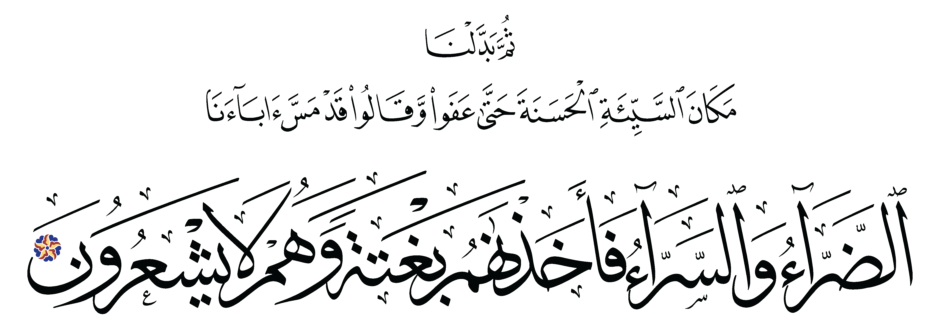 ثُمَّ بَدَّلْنَا
مَكَانَ ٱلسَّيِّئَةِ ٱلْحَسَنَةَ حَتَّىٰ عَفَوا۟ وَّقَالُوا۟ قَدْ مَسَّ ءَابَآءَنَا
ٱلضَّرَّآءُ وَٱلسَّرَّآءُ فَأَخَذْنَٰهُم بَغْتَةً وَهُمْ لَا يَشْعُرُونَ